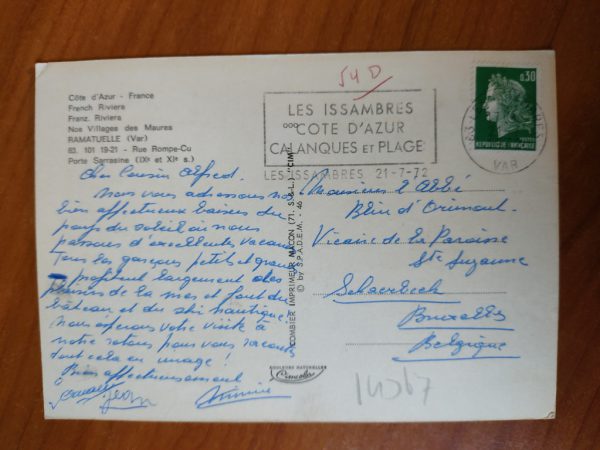 54 D
LES ISSAMBRES
CÔTE D'AZUR
CALANQUES ET PLAGE
LES ISSAMBRES 21-7-72
0,30
REPUBLIQUE FRANÇAISE
VAR
Côte d'Azur - France
French Riviera
Franz. Riviera
Nos Villages des Maures
RAMATUELLE (Var)
83. 101 19-21 - Rue Rompe-Cu
Porte Sarrasine (IXᵉ et XIᵉ s.)
Cher Cousin Alfred.
Nous vous adressons nos
bien affectueux baisers du
pays du soleil où nous
passons d'excellentes vacances
Tous les garçons petits et grands
profitent largement des
plaisirs de la mer et font du
bâteau et du ski nautique
Nous espérons votre visite à
notre retour pour vous raconter
tout cela en image!
Bien affectueusement
Jean
COMBIER IMPRIMEUR MACON (71. S.&L.) "CIM"
© by S.P.A.D.E.M. - 46
COULEURS NATURELLES
Cimcolor
Monsieur l'Abbé
Vicaire de la Paroisse
Ste Suzanne
Schaerbeek
Bruxelles
Belgique
14367